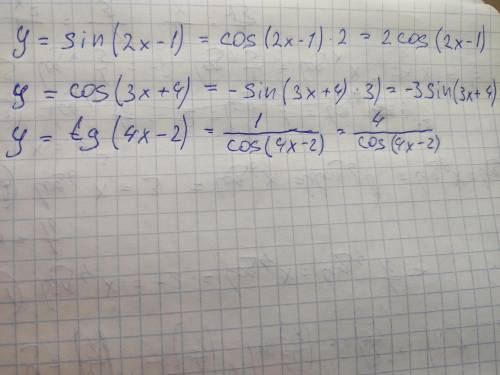 y = sin(2x-1) = cos(2x-1)·2 = 2cos(2x-1)
y = cos(3x+4) = -sin(3x+4)·3) = -3sin(3x+4)
y = tg(4x-2) = 1/cos(4x-2) = 4/cos(4x-2)